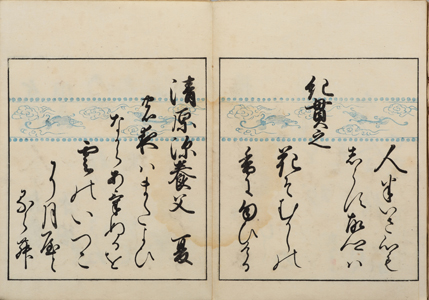 人はいさ心も
しらす故郷ハ
紀貫之
花そむかしの
香に匂ひける
清原深養父 夏
の夜ハまたよひ
なから明ぬるを
雲のいつこ
に月やと
るらむ